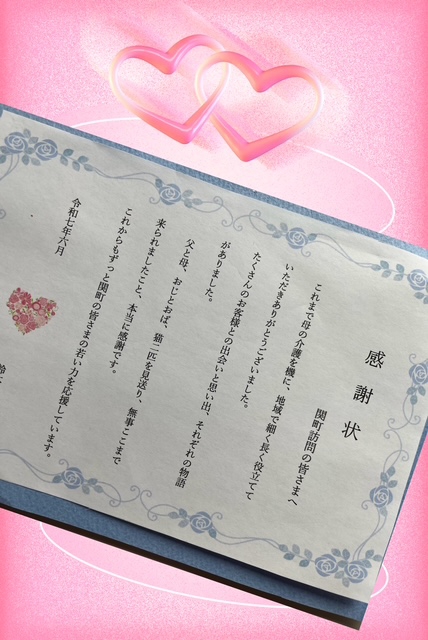 感謝状
関町訪問の皆さまへ
これまで母の介護を機に、地域で細く長く役立てて
いただきありがとうございました。
たくさんのお客様との出会いと思い出、それぞれの物語
がありました。
父と母、おじとおば、猫二匹を見送り、無事ここまで
来られましたこと、本当に感謝です。
これからもずっと関町の皆さまの若い力を応援しています。
令和七年六月